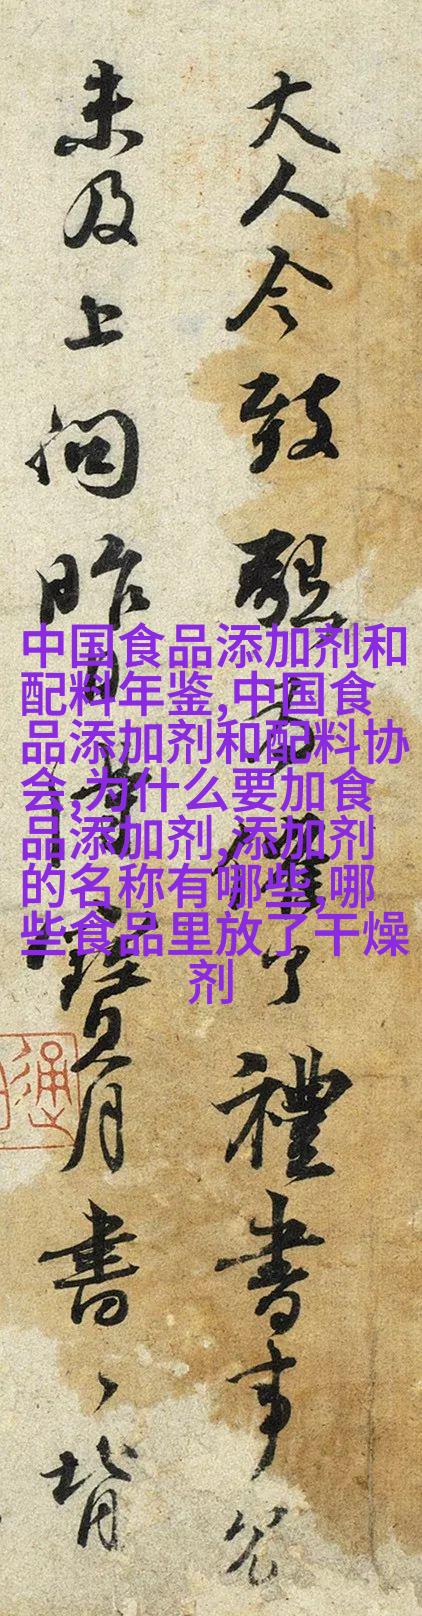 大人令致懇為催了禮書事冗
未及上問昨日得寶月書、背
中国食品添加剂和
配料年鉴,中国食
品添加剂和配料协
会,为什么要加食
品添加剂,添加剂
的名称有哪些,哪
些食品里放了干燥
剂